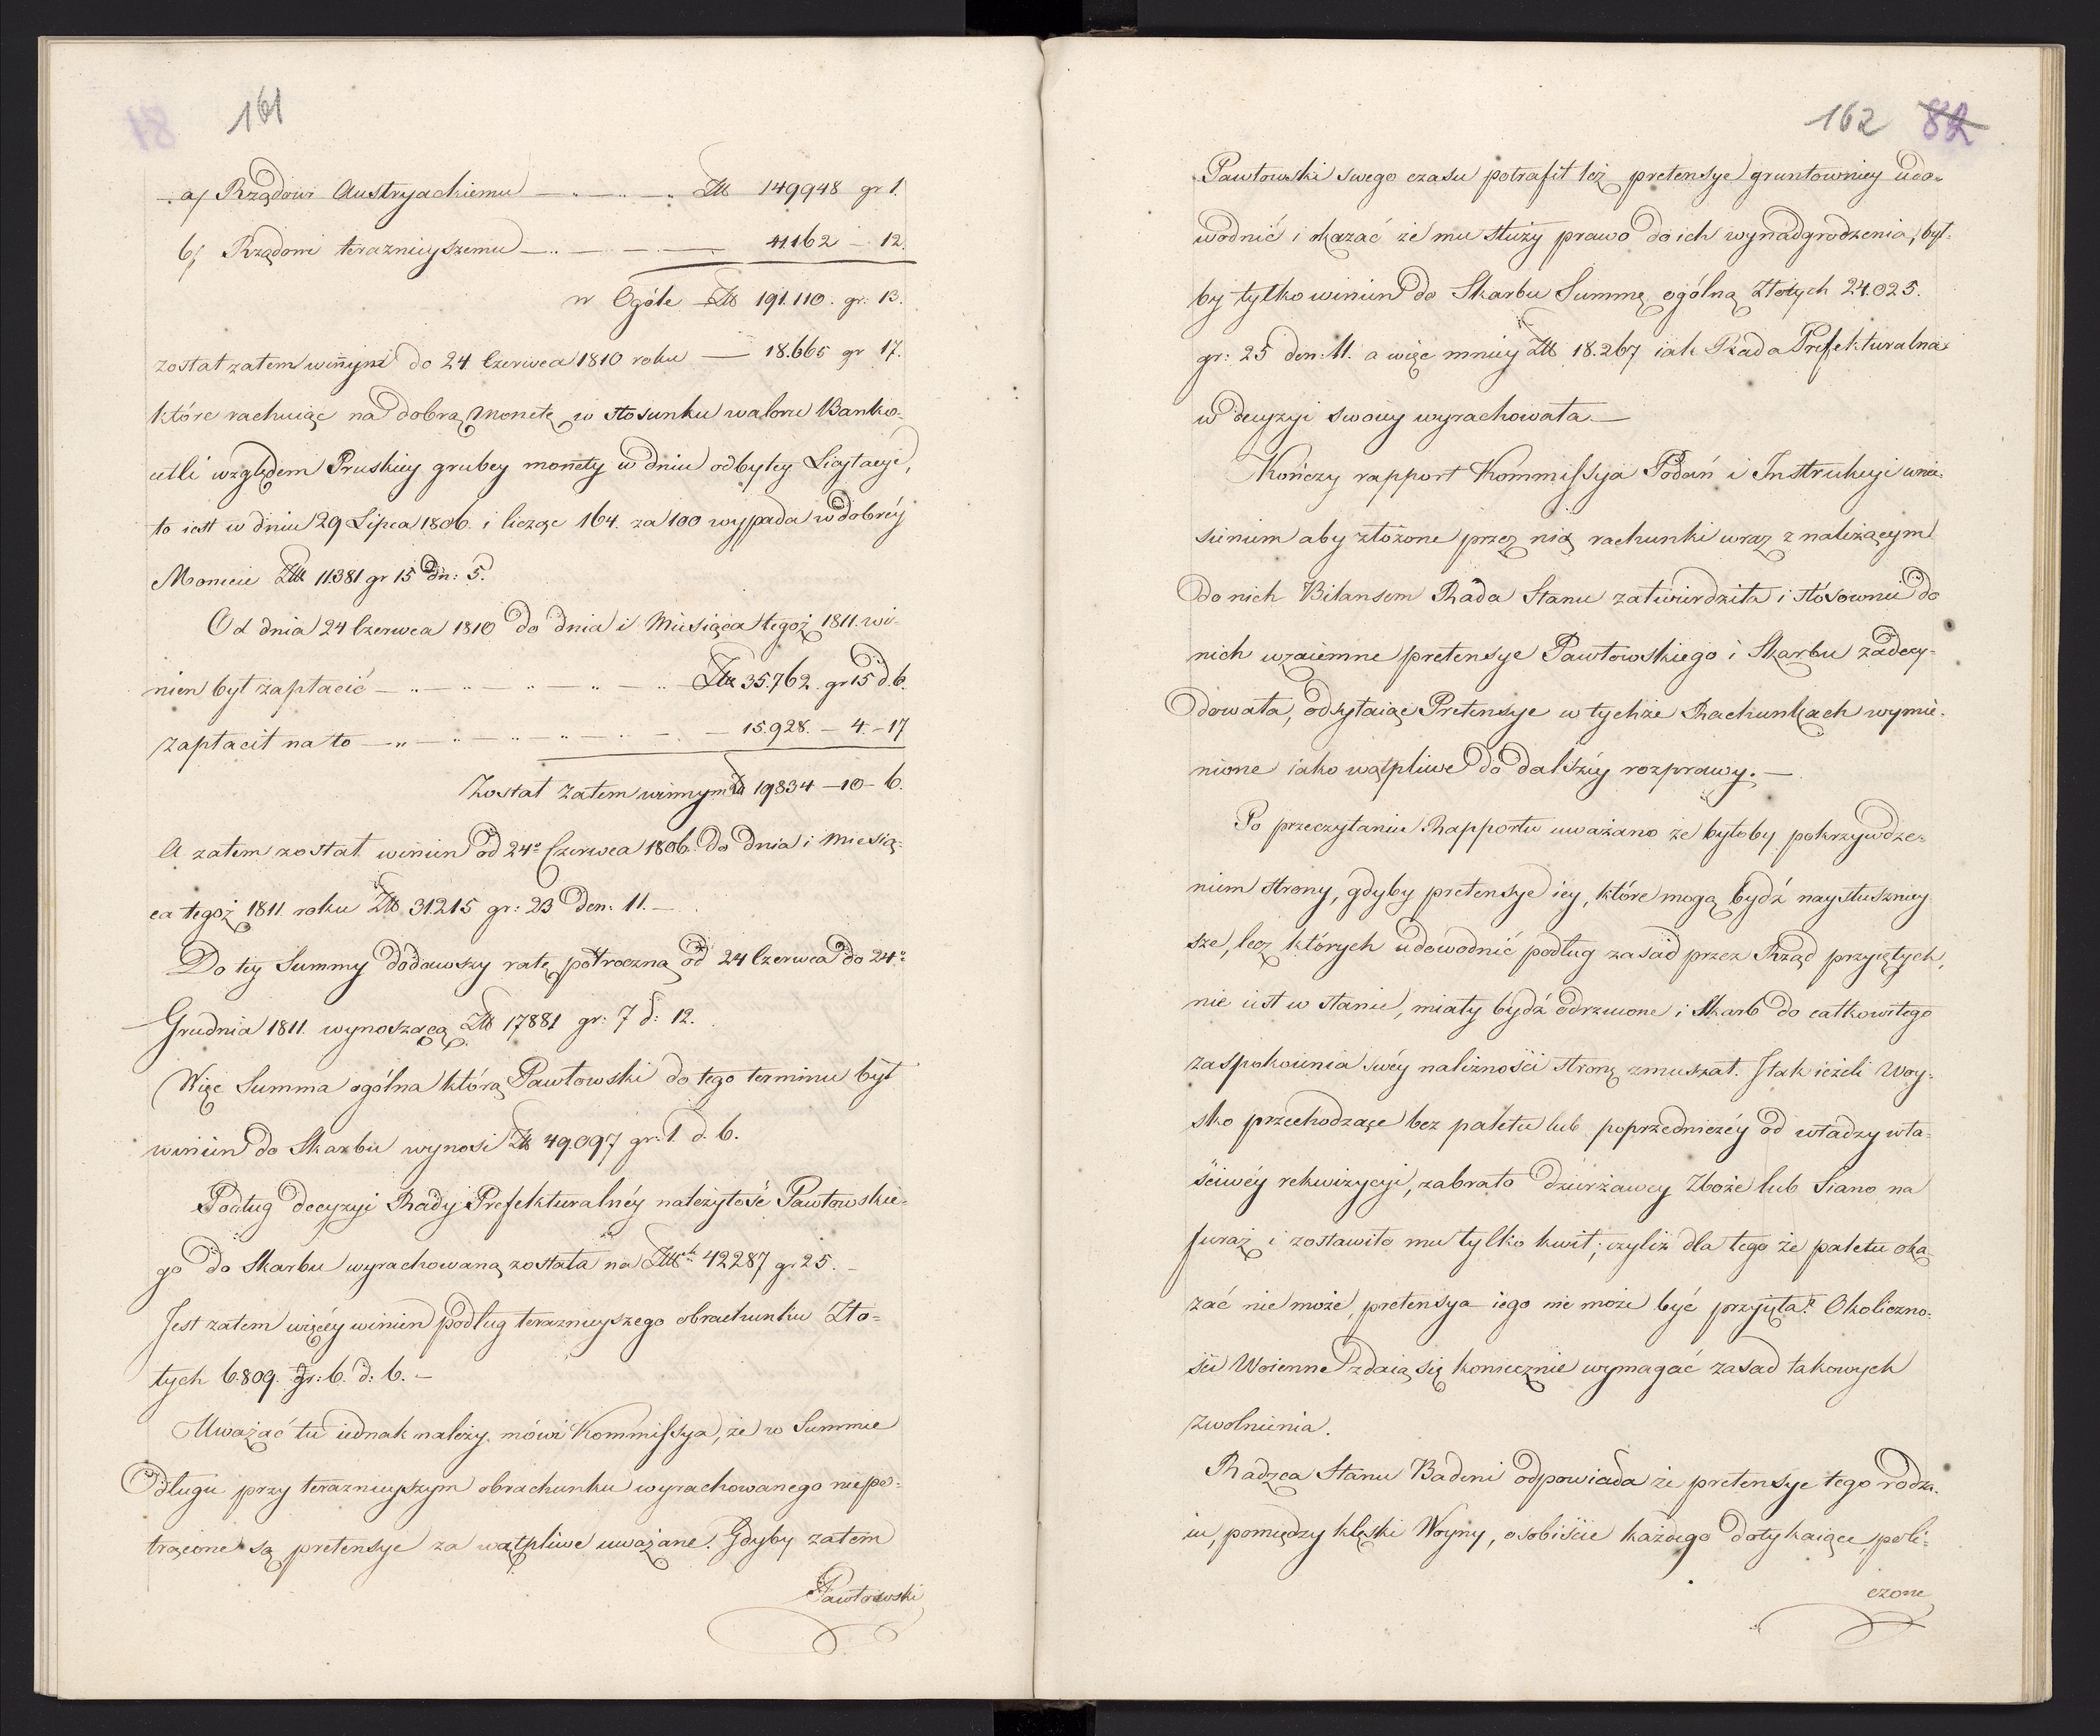 161
a/ Rządowi Austryackiemu — „ — „ — „ Złł 149948 gr 1.
b/ Rządowi teraznieyszemu — „ — — — 41.162 — 12.
w Ogóle Złł 191.110. gr: 13.
został zatem winnym do 24 Czerwca 1810 roku — 18.665 gr 17.
które rachuiąc na dobrą Monetę w stosunku waloru Banko-
cetli względem Pruskiey grubey monety w dniu odbytey Licytacyi,
to iest w dniu 29 Lipca 1806. i licząc 164. za 100 wypada w dobréy
Monecie Złł 11381 gr 15 dn: 5.
Od dnia 24 Czerwca 1810 do dnia i Miesiąca tegoż 1811. wi-
nien był zapłacić — „ — „ — „ — „ — „ Złł 35.762. gr 15 d. 6.
zapłacił na to — „ — „ — „ — „ — — 15.928. — 4. — 17
Został zatem winnym Złł 19834 — 10 — 6.
A zatem został winien od 24o Czerwca 1806. do dnia i Miesią-
ca tegoż 1811. roku Złł 31215 gr: 23 den: 11. —
Do tey Summy dodawszy ratę półroczną od 24 Czerwca do 24o
Grudnia 1811. wynoszącą Złł 17881 gr: 7 d: 12.
Więc Summa ogólna którą Pawłowski do tego terminu był
winien do Skarbu wynosi Złł 49.097 gr: 1. d. 6.
Podług decyzyi Rady Prefekturalnéy należytość Pawłowskie-
go do Skarbu wyrachowaną została na Złłch 42287 gr 25. —
Jest zatem więcéy winien podług teraznieyszego obrachunku Zło=
tych 6.809. gr: 6. d: 6. —
Uważać tu iednak należy, mówi Kommissya, że w Summie
długu przy teraznieyszym obrachunku wyrachowanego niepo-
trącone są pretensye za wątpliwe uważane. Gdyby zatem
Pawłowski
162 82
Pawłowski swego czasu potrafił też pretensye gruntowniey udo-
wodnić i okazać że mu służy prawo do ich wynadgrodzenia, był-
by tylko winien do Skarbu Summę ogólną Złotych 24.025.
gr: 25 den: 11. a więc mniey Złł 18.267 iak Rada Prefekturalna
w decyzyi swoiey wyrachowała. —
Kończy rapport Kommissya Podań i Instrukcyi wnie-
sieniem aby złożone przez nią rachunki wraz z należącym
do nich Bilansem Rada Stanu zatwierdziła i stósownie do
nich wzaiemne pretensye Pawłowskiego i Skarbu zadecy-
dowała, odsyłaiąc Pretensye w tychże Rachunkach wymie-
nione iako wątpliwe do dalszéy rozprawy. —
Po przeczytaniu Rapportu uważano że byłoby pokrzywdze-
niem strony, gdyby pretensye iey, które mogą bydź naysłuszniey
sze, lecz których udowodnić podług zasad przez Rząd przyiętych,
nie iest w stanie, miały bydź odrzucone i Skarb do całkowitego
zaspokoienia swéy należności stronę zmuszał. I tak ieżeli Woy-
sko przechodzące bez paletu lub poprzedniczéy od władzy wła-
ściwéy rekwizycyi, zabrało dzierżawcy Zboże lub Siano na
furaż i zostawiło mu tylko kwit; czyliż dla tego że paletu oka-
zać nie może, pretensya iego nie może być przyięta? Okoliczno-
ści Woienne zdaią się koniecznie wymagać zasad takowych
zwolnienia.
Radzca Stanu Badeni odpowiada że pretensye tego rodza-
iu, pomiędzy klęski Woyny, osobiście każdego dotykaiące, poli-
czone